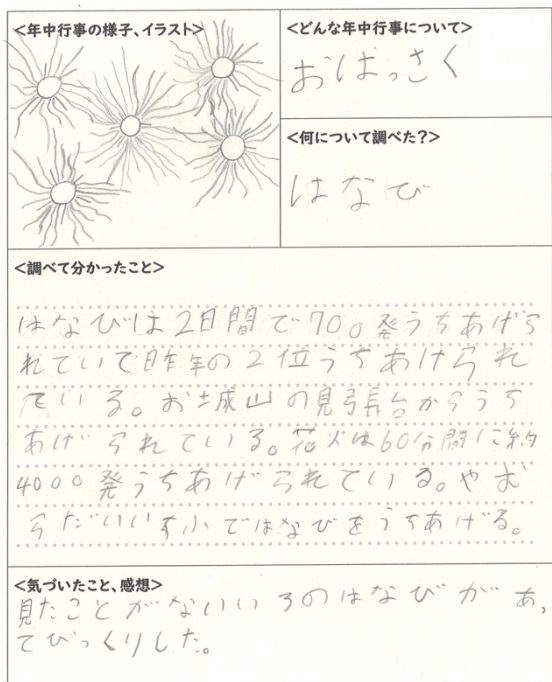 <年中行事の様子、イラスト>
<どんな年中行事について>
おはっさく
<何について調べた?>
はなび
<調べて分かったこと>
はなびは2日間で700発うちあげら
れていて昨年の2位うちあけられ
ている。お城山の見張台からうち
あげられている。花火は60分間に約
4000発うちあげられている。やお
らだいい小ではなびをうちあげる。
<気づいたこと、感想>
見たことがないいろのはなびがあっ
てびっくりした。